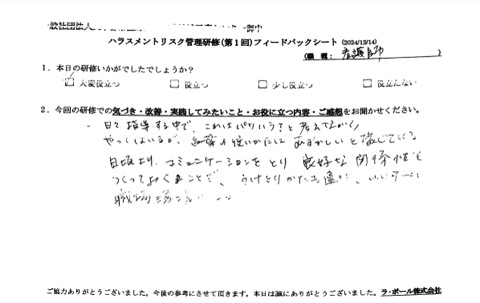 ハラスメントリスク管理研修(第1回)フィードバックシート (2024/12/14)
(職種: 看護師 )
1.本日の研修いかがでしたでしょうか?
大変役立つ 役立つ 少し役立つ 役立たない
2.今回の研修での気づき・改善・実践してみたいこと・お役に立つ内容・ご感想をお聞かせください。
日々指導する中で、これはパワハラ?と考えながら
やってはいるが、言葉の使いかたはむずかしいと感じている
日頃より、コミュニケーションをとり 良好な関係性を
つくっておくことで、うけとりかたも違い、
職場
ご協力ありがとうございました。今後の参考にさせて頂きます。本日は誠にありがとうございました。ラ・ポール株式会社